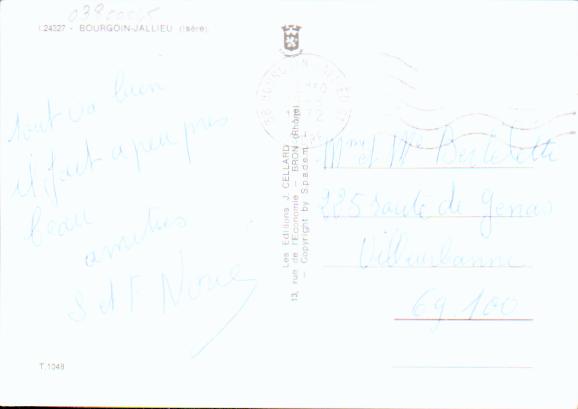 03800005
L24327 - BOURGOIN-JALLIEU (Isère)
tout va bien
il fait a peu pres
beau
amitiés
S et F
Les Editions J. CELLARD
13, rue de l'Economie - BRON (Rhône)
- Copyright by S.p.a.d.e.m. -
Mme et Mr
225 route de Genas
Villeurbanne
69 100
T.1048